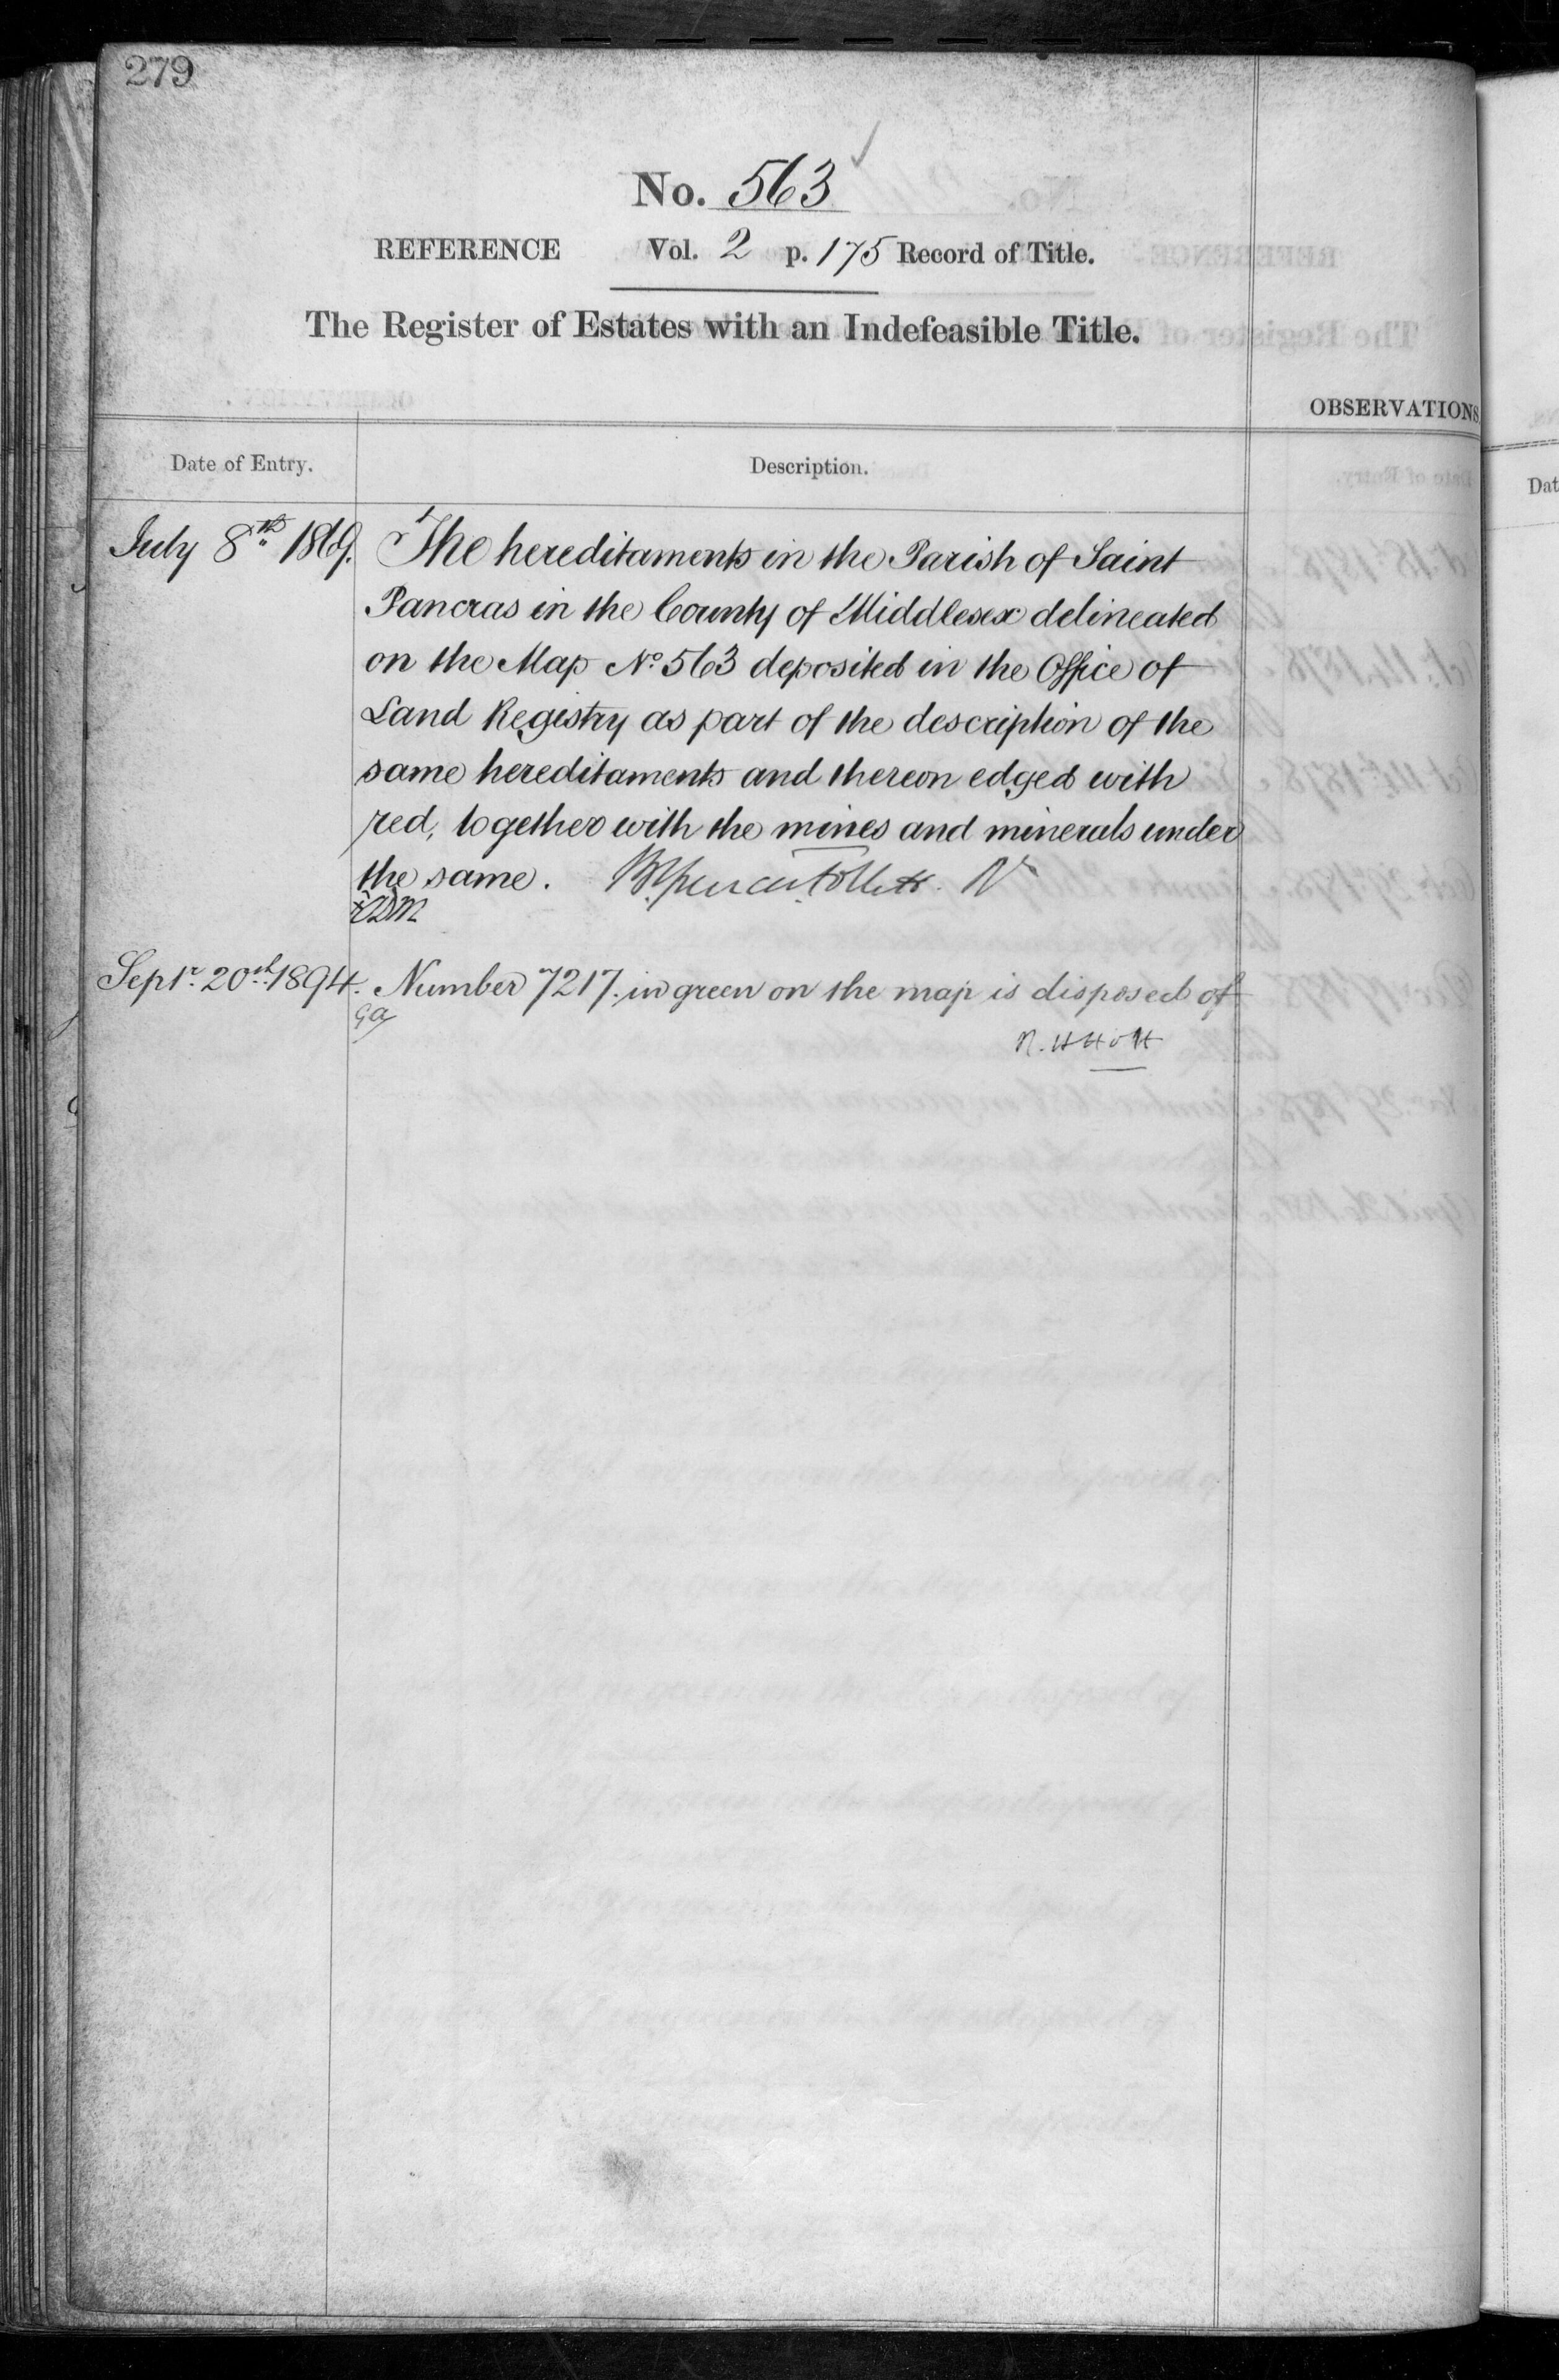 279
No. 563
REFERENCE Vol. 2 p. 175 Record of Title.
The Register of Estates with an Indefeasible Title.
OBSERVATIONS
Date of Entry. Description.
July 8th 1869. The hereditaments in the Parish of Saint
Pancras in the County of Middlesex delineated
on the Map No 563 deposited in the Office of
Land Registry as part of the description of the
same hereditaments and thereon edged with
red, together with the mines and minerals under
the same.
Septr. 20th 1894. Number 7217 in green on the map is disposed of
R. H Holt
Dat